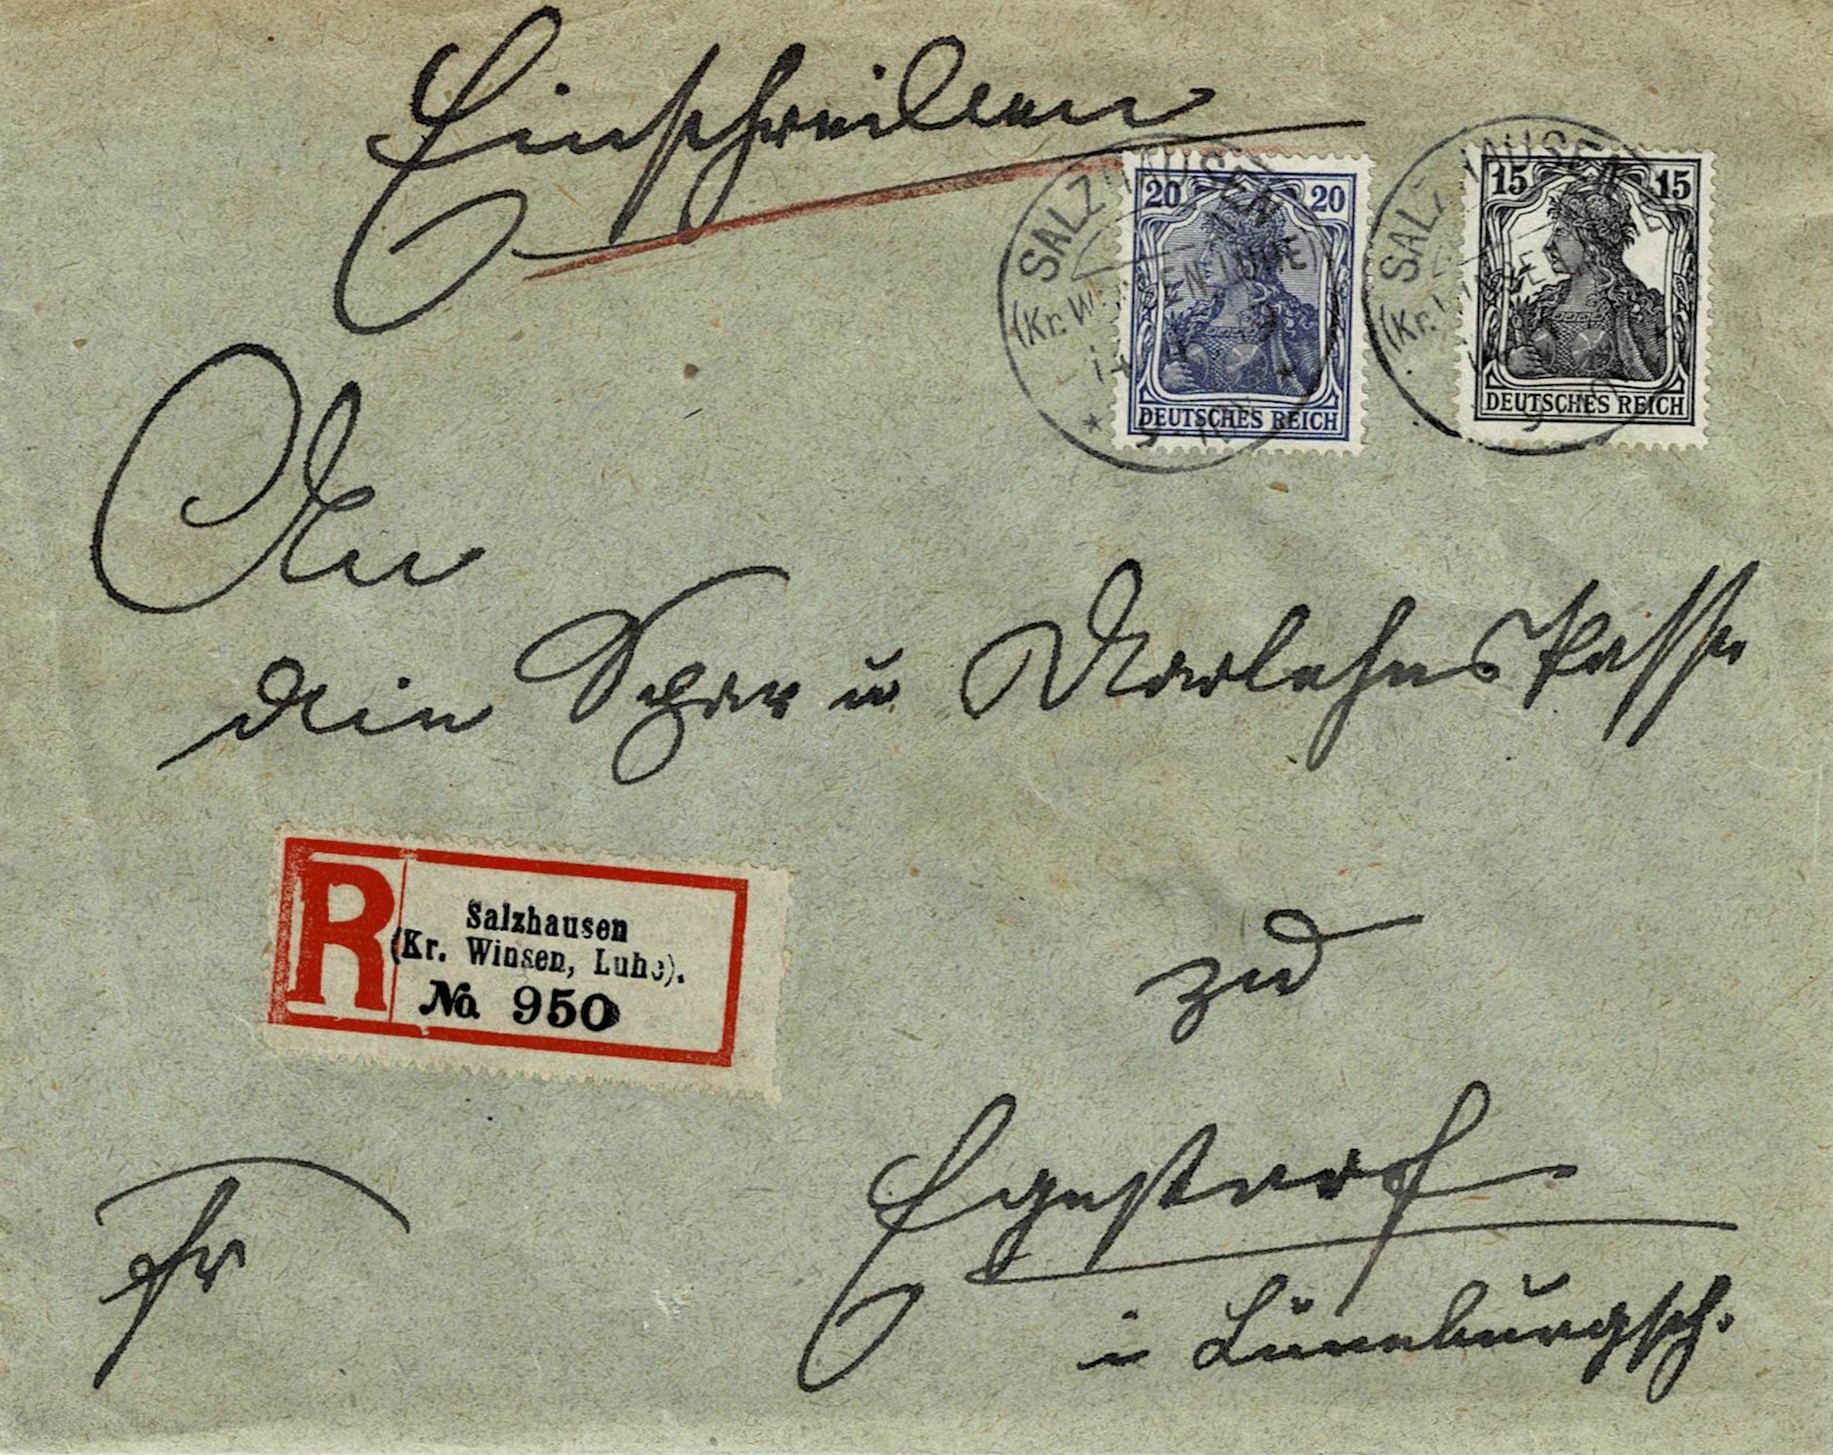 Einschreiben
20 20
DEUTSCHES REICH
15 15
DEUTSCHES REICH
SALZHAUSEN
(Kr. WINSEN, LUHE)
SALZHAUSEN
(Kr.
An
die Spar u Darlehnskasse
R
Salzhausen
(Kr. Winsen, Luhe).
No 950
zu
Egestorf
i Lüneburgsch.
Fr